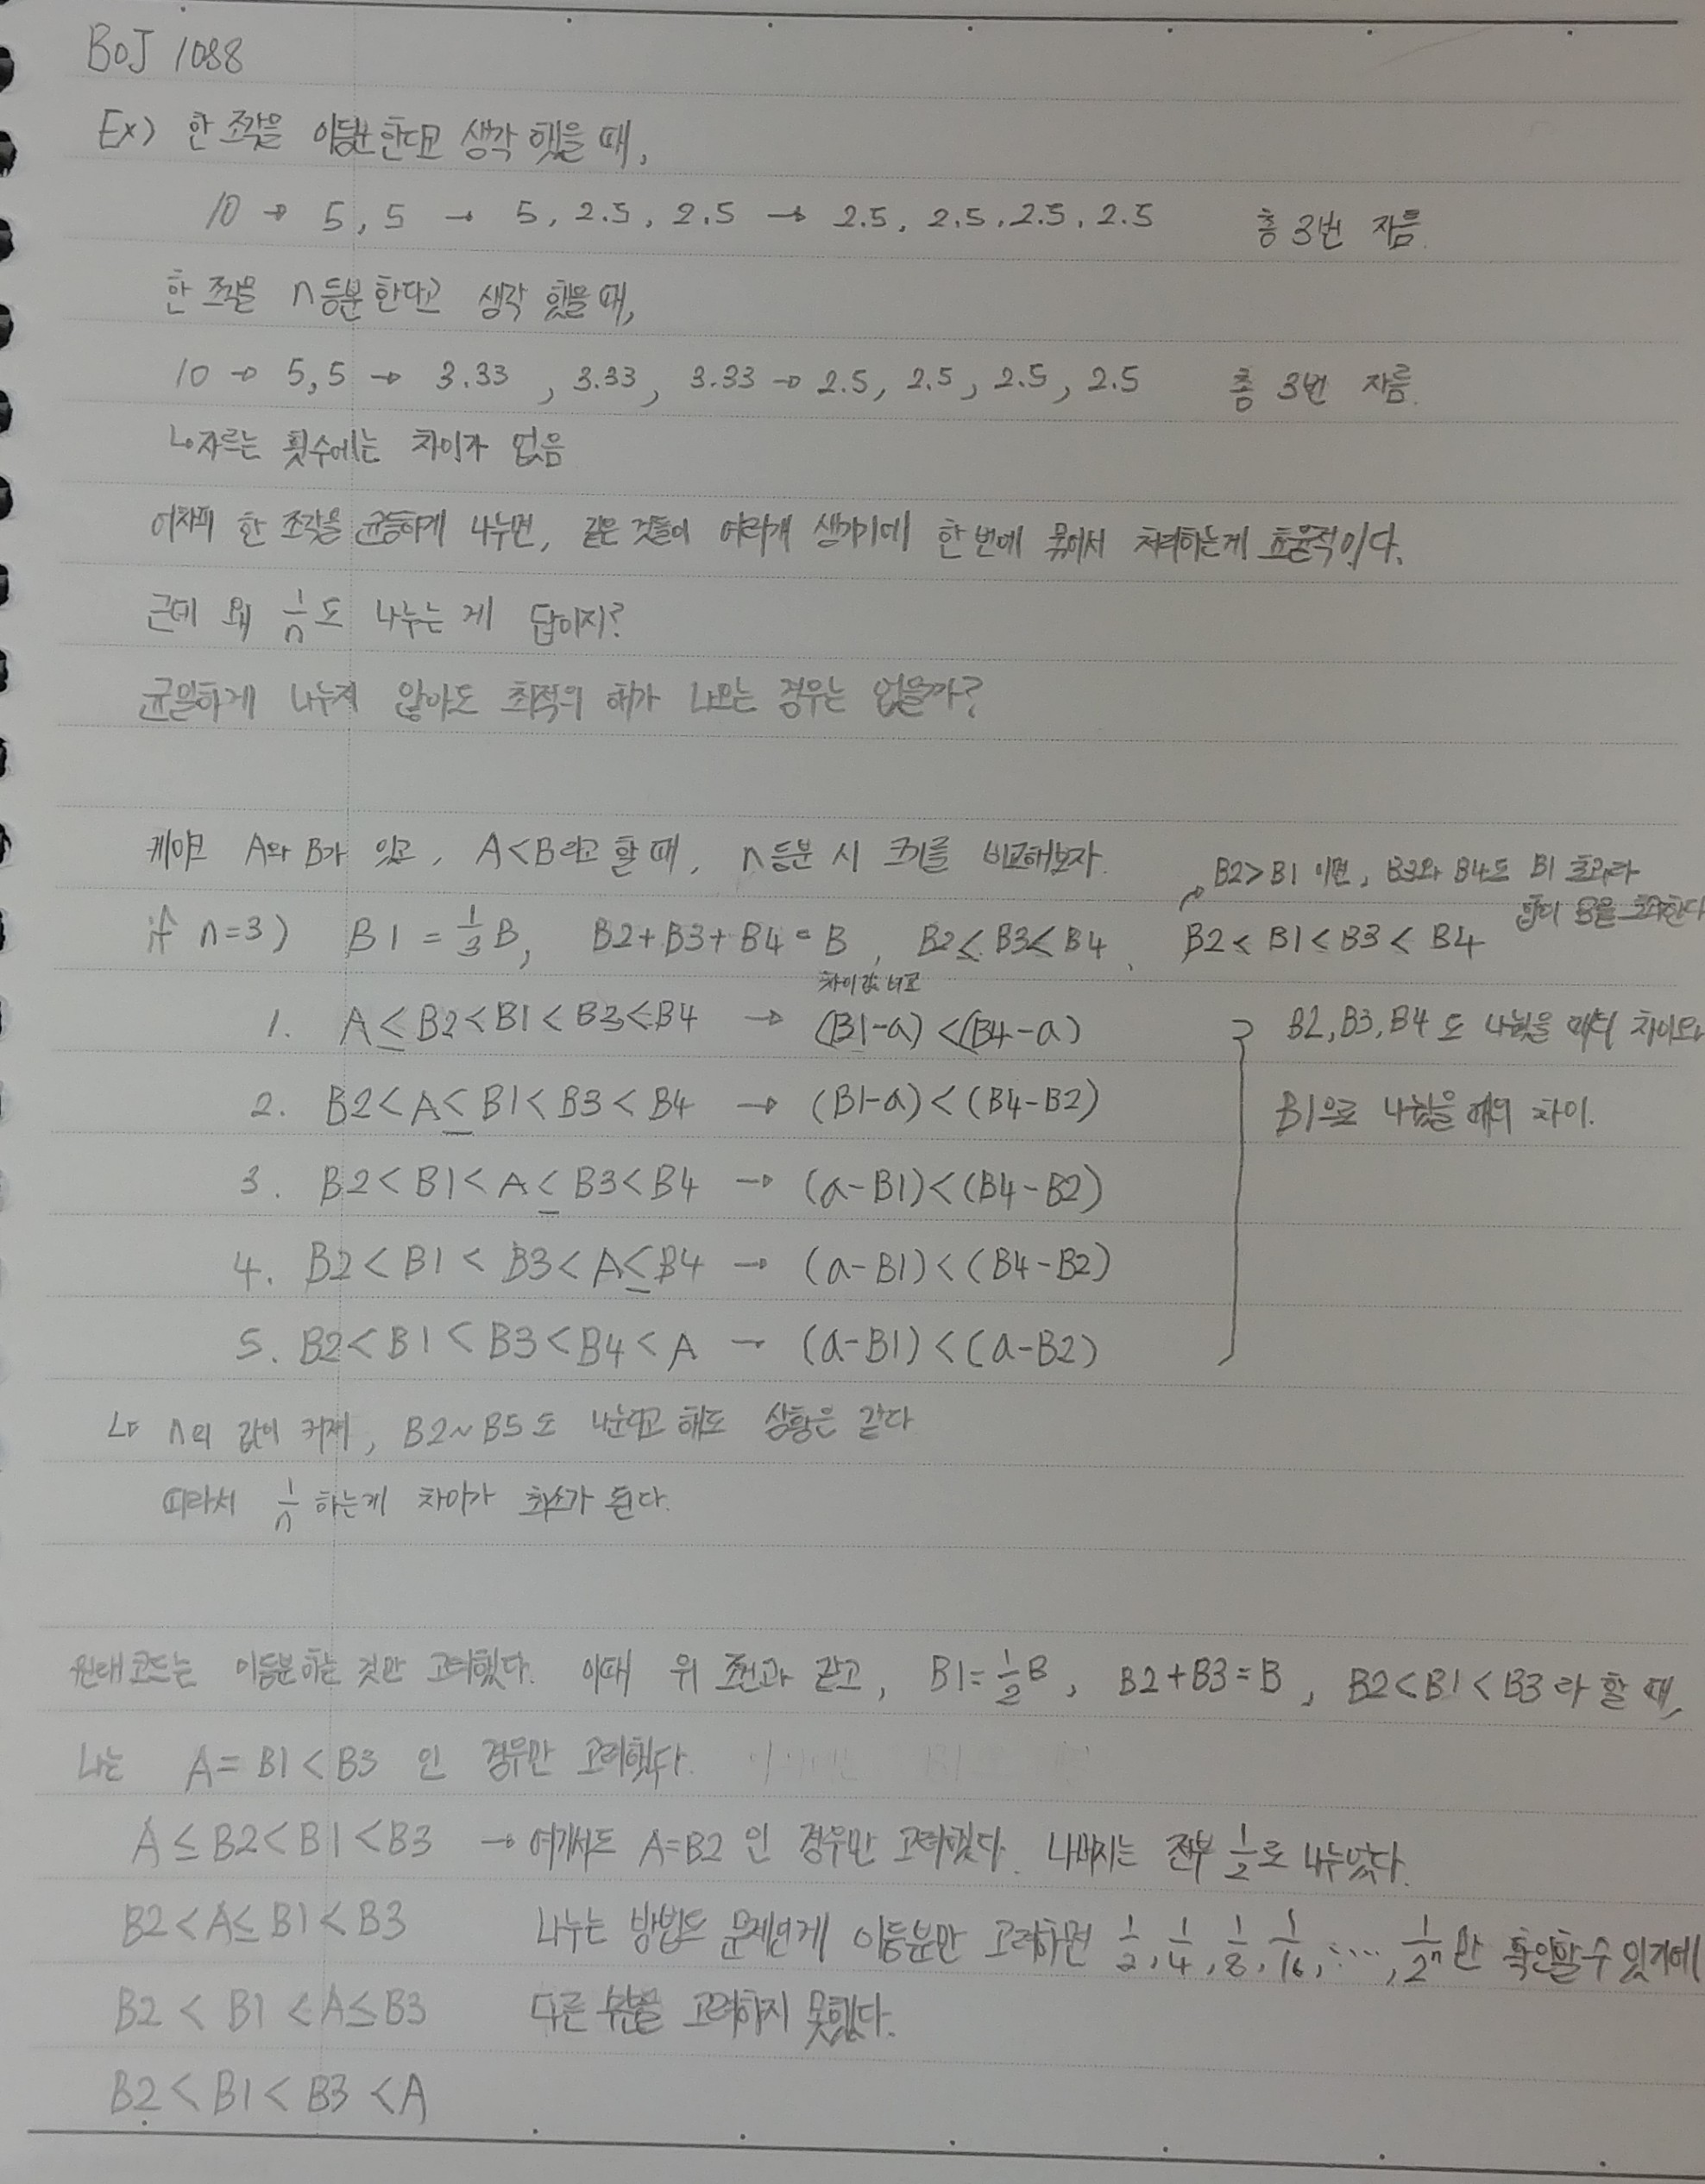 BOJ 1088
Ex) 한 조각을 이등분한다고 생각 했을 때,
10 → 5, 5 → 5, 2.5, 2.5 → 2.5, 2.5, 2.5, 2.5 총 3번 자름.
한 조각을 n등분한다고 생각 했을 때,
10 → 5, 5 → 3.33, 3.33, 3.33 → 2.5, 2.5, 2.5, 2.5 총 3번 자름.
↳ 자르는 횟수에는 차이가 없음
어차피 한 조각을 균등하게 나누면, 같은 것들이 여러개 생기기에 한 번에 묶어서 처리하는게 효율적이다.
근데 왜 1/n로 나누는 게 답이지?
균일하게 나누지 않아도 최적의 해가 나오는 경우는 없을까?
케이크 A와 B가 있고, A<B라고 할 때, n등분 시 크기를 비교해보자.
B2>B1 이면, B3와 B4도 B1 초과라
합이 B을 초과한다
if n=3) B1 = 1/3 B, B2+B3+B4=B, B2≤B3≤B4, B2<B1<B3<B4
차이값 비교
1. A≤B2<B1<B3<B4 → (B1-a)<(B4-a)
B2, B3, B4로 나눴을 때의 차이와
2. B2<A≤B1<B3<B4 → (B1-a)<(B4-B2)
B1으로 나눴을 때의 차이.
3. B2<B1<A≤B3<B4 → (a-B1)<(B4-B2)
4. B2<B1<B3<A≤B4 → (a-B1)<(B4-B2)
5. B2<B1<B3<B4<A → (a-B1)<(a-B2)
↳ n의 값이 커져, B2~B5로 나눈다고 해도 상황은 같다
따라서 1/n 하는게 차이가 최소가 된다.
원래 코드는 이등분하는 것만 고려했다. 이때 위 조건과 같고, B1=1/2 B, B2+B3=B, B2<B1<B3라 할 때,
나는 A=B1<B3 인 경우만 고려했다.
A≤B2<B1<B3 → 여기서도 A=B2 인 경우만 고려했다. 나머지는 전부 1/2로 나누었다.
B2<A≤B1<B3 나누는 방법도 문제인게 이등분만 고려하면 1/2, 1/4, 1/8, 1/16, ····, 1/2ⁿ만 확인할 수 있기에
B2<B1<A≤B3 다른 부분을 고려하지 못했다.
B2<B1<B3<A